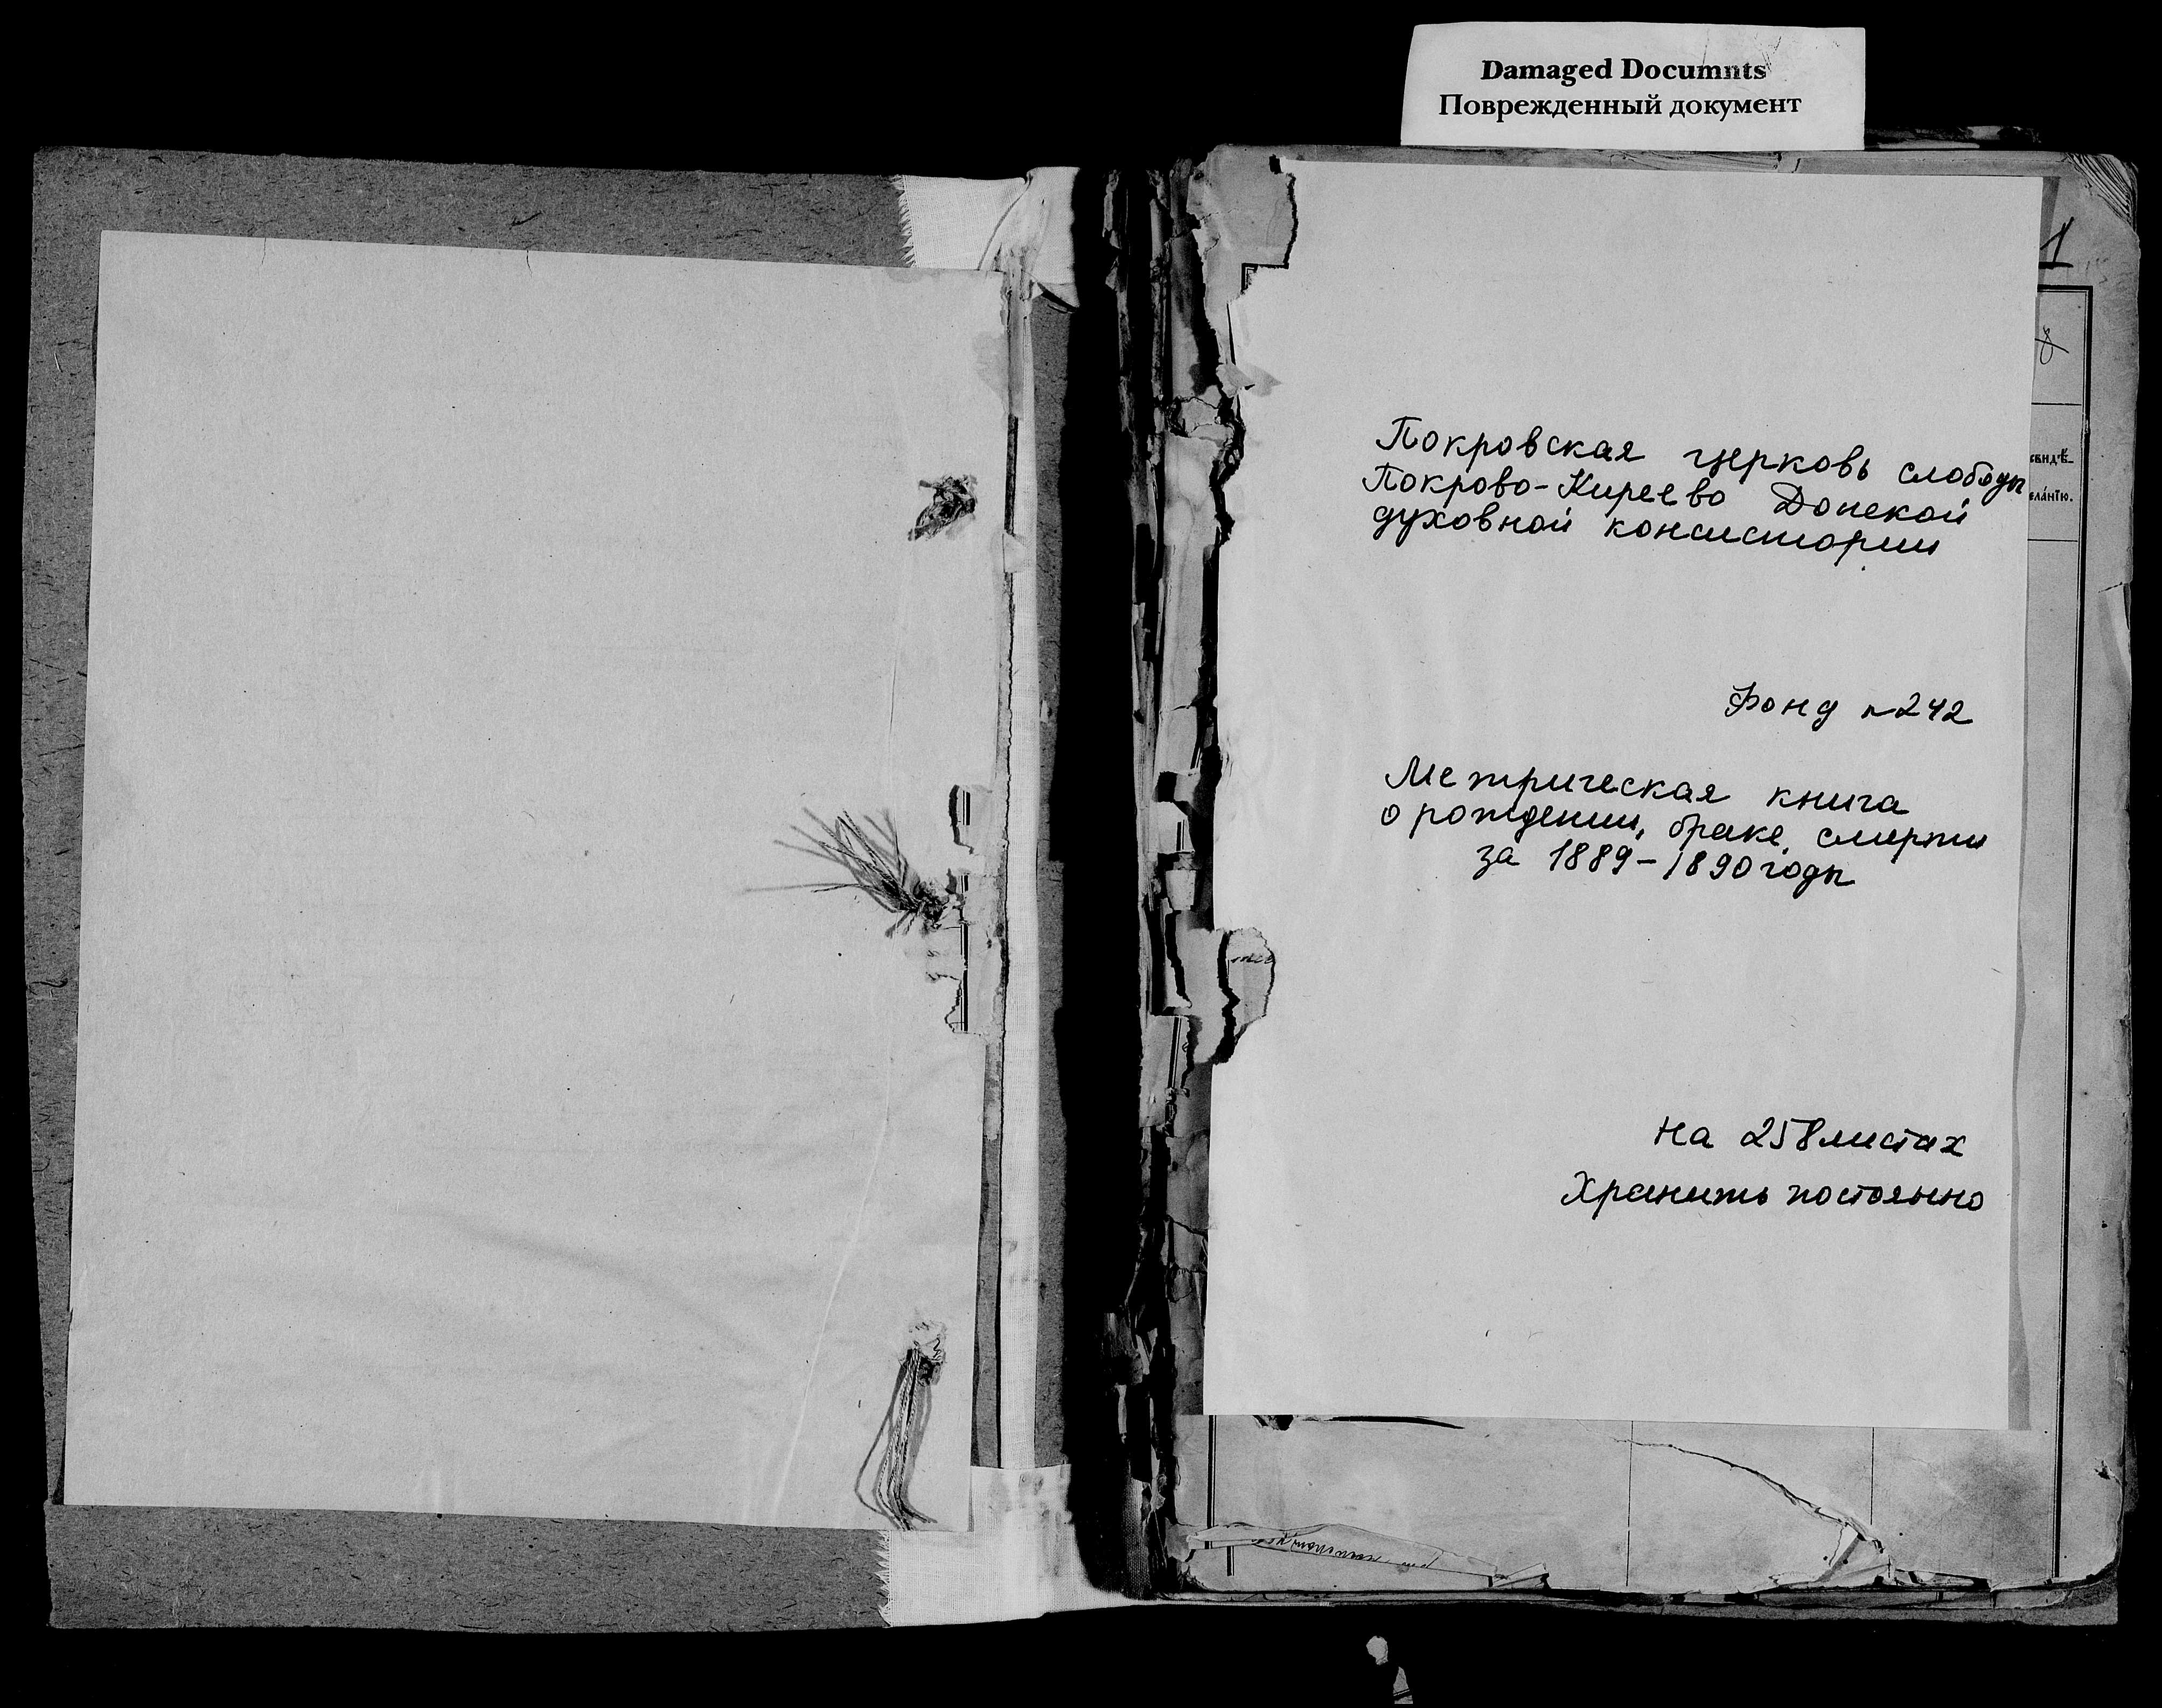 Damaged Documnts
Поврежденный документ
1
Покровская церковь слободы
Покрово-Киреево Донской
духовной консистории
свидѣ-
елáнїю.
Фонд №242
Метрическая книга
о рождении, браке, смерти
за 1889-1890 годы
на 258 листах
Хранить постоянно